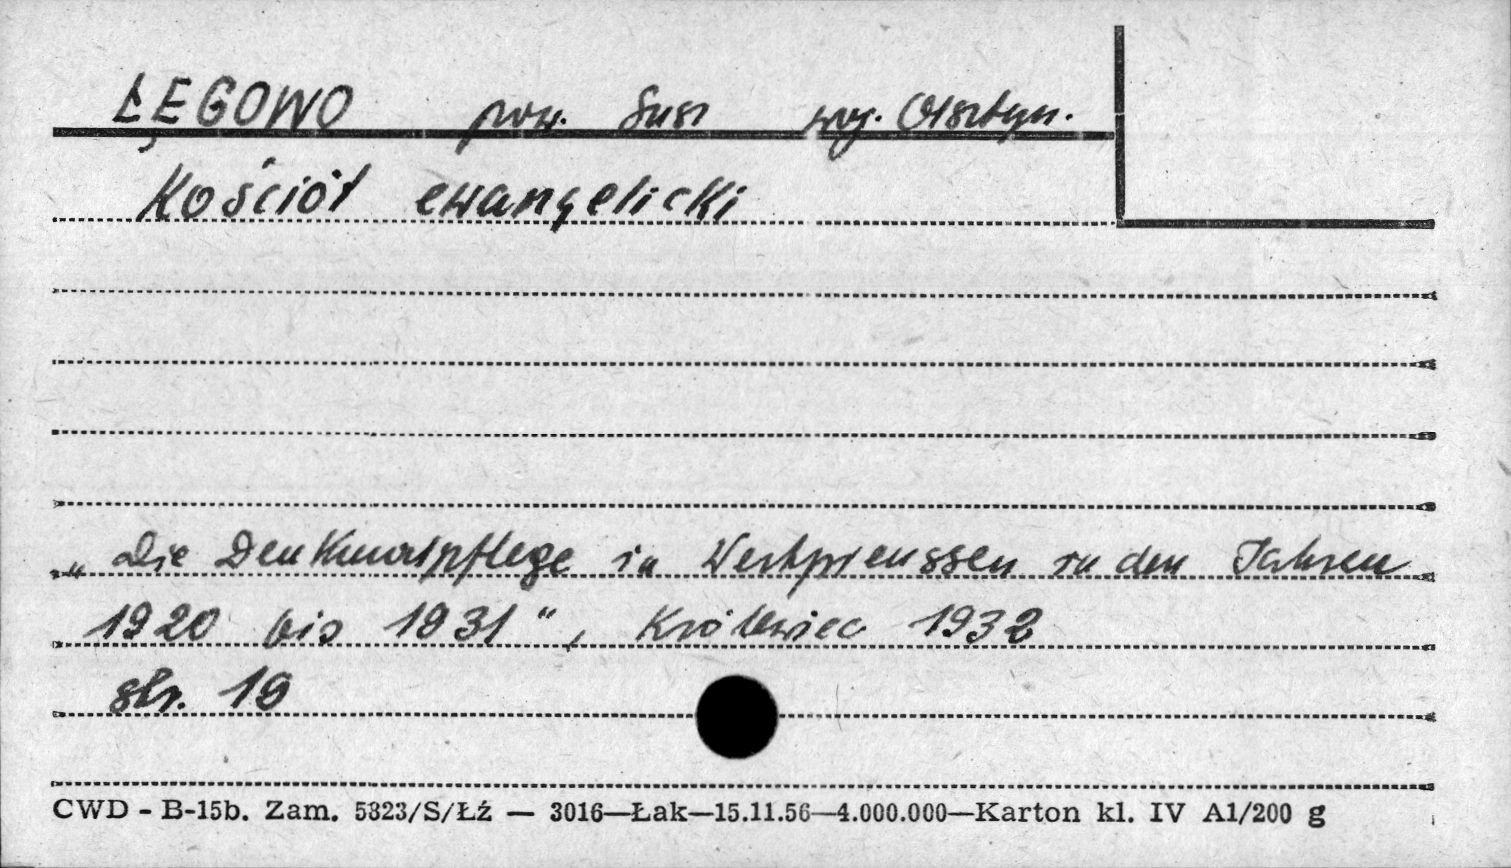 ŁĘGOWO pow. Susz woj. Olsztyn.
Kościół ewangelicki
„Die Denkmalpflege in Westpreussen in den Jahren
1920 bis 1931", Królewiec 1932
str. 19
CWD - B-15b. Zam. 5823/S/Łź — 3016—Łak—15.11.56—4.000.000—Karton kl. IV A1/200 g